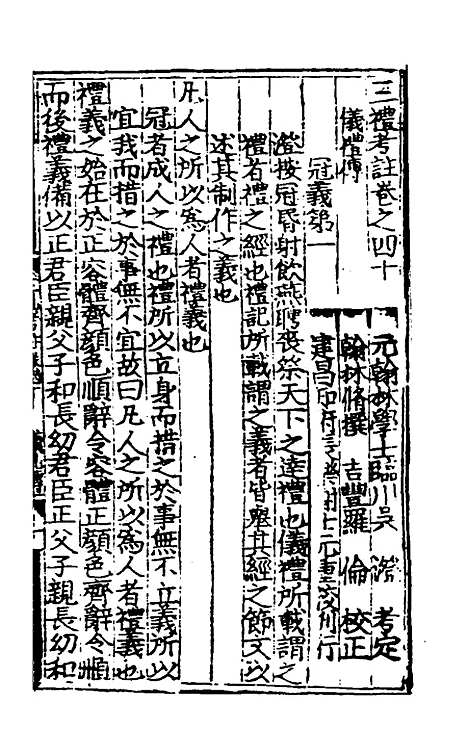 三禮考註卷之四十
元翰林學士臨川吳 澄 考定
儀禮傳
翰林脩撰 吉豐羅 倫 校正
冠義第一
建昌 府 謝士元重 刋行
澄按冠昏射飲燕聘喪祭天下之逹禮也儀禮所載謂之
禮者禮之經也禮記所載謂之義者皆舉其經之節文以
述其制作之義也
凡人之所以為人者禮義也
冠者成人之禮也禮所以立身而措之於事無不立義所以
宜我而措之於事無不宜故曰凡人之所以為人者禮義也
禮義之始在於正容體齊顔色順辭令容體正顔色齊辭令順
而後禮義備以正君臣親父子和長幼君臣正父子親長幼和